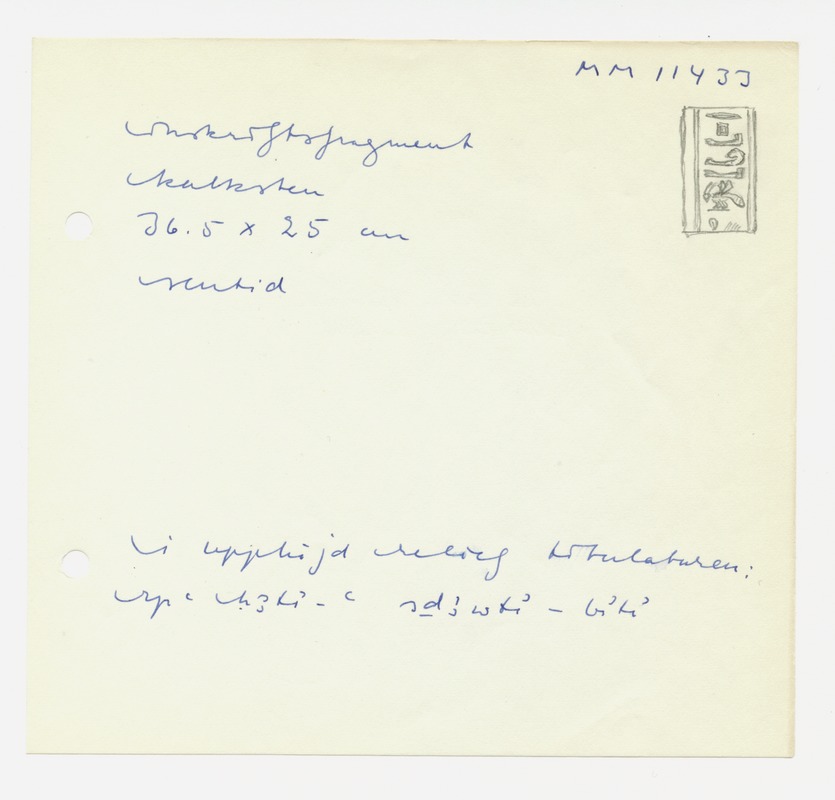 MM 11433
inskriftsfragment
kalksten
36.5 x 25 cm
sentid
i upphöjd relief titulaturen:
rpꜥ ḥꜣtỉ-ꜥ sḏꜣwtỉ - bỉtỉ